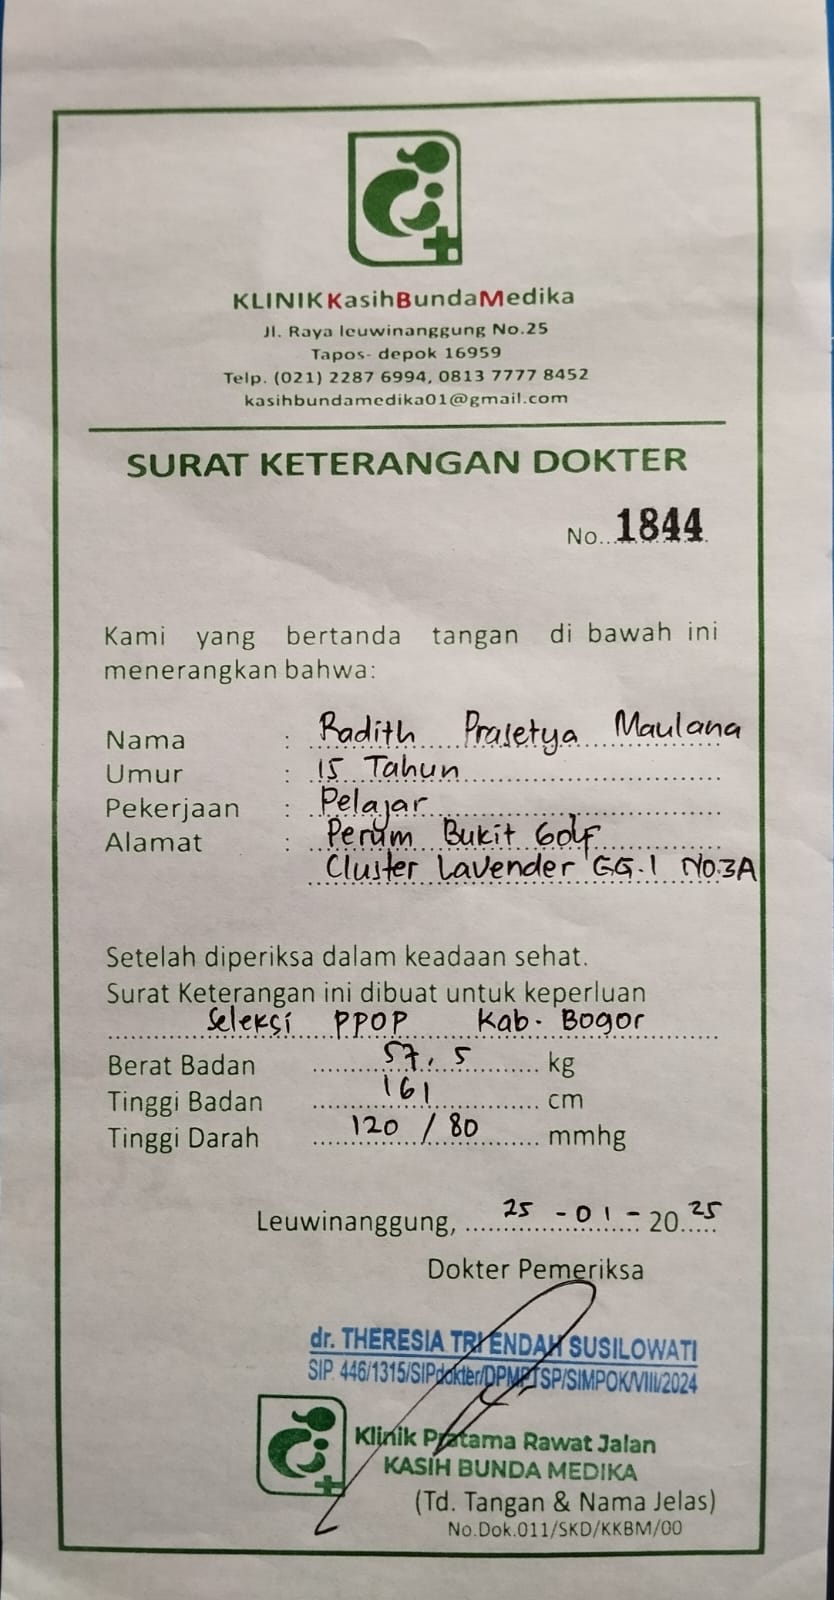 KLINIK KasihBundaMedika
Jl. Raya leuwinanggung No.25
Tapos- depok 16959
Telp. (021) 2287 6994, 0813 7777 8452
kasihbundamedika01@gmail.com
SURAT KETERANGAN DOKTER
No...1844
Kami yang bertanda tangan di bawah ini
menerangkan bahwa:
Nama : Radith Prasetya Maulana
Umur : 15 Tahun
Pekerjaan : Pelajar
Alamat : Perum Bukit Golf
Cluster Lavender GG.1 No.3A
Setelah diperiksa dalam keadaan sehat.
Surat Keterangan ini dibuat untuk keperluan
Seleksi PPOP Kab. Bogor
Berat Badan 57,5 kg
Tinggi Badan 161 cm
Tinggi Darah 120 / 80 mmhg
Leuwinanggung, 25 - 01 - 2025
Dokter Pemeriksa
dr. THERESIA TRI ENDAH SUSILOWATI
SIP. 446/1315/SIPdokter/DPMPTSP/SIMPOK/VIII/2024
Klinik Pratama Rawat Jalan
KASIH BUNDA MEDIKA
(Td. Tangan & Nama Jelas)
No.Dok.011/SKD/KKBM/00